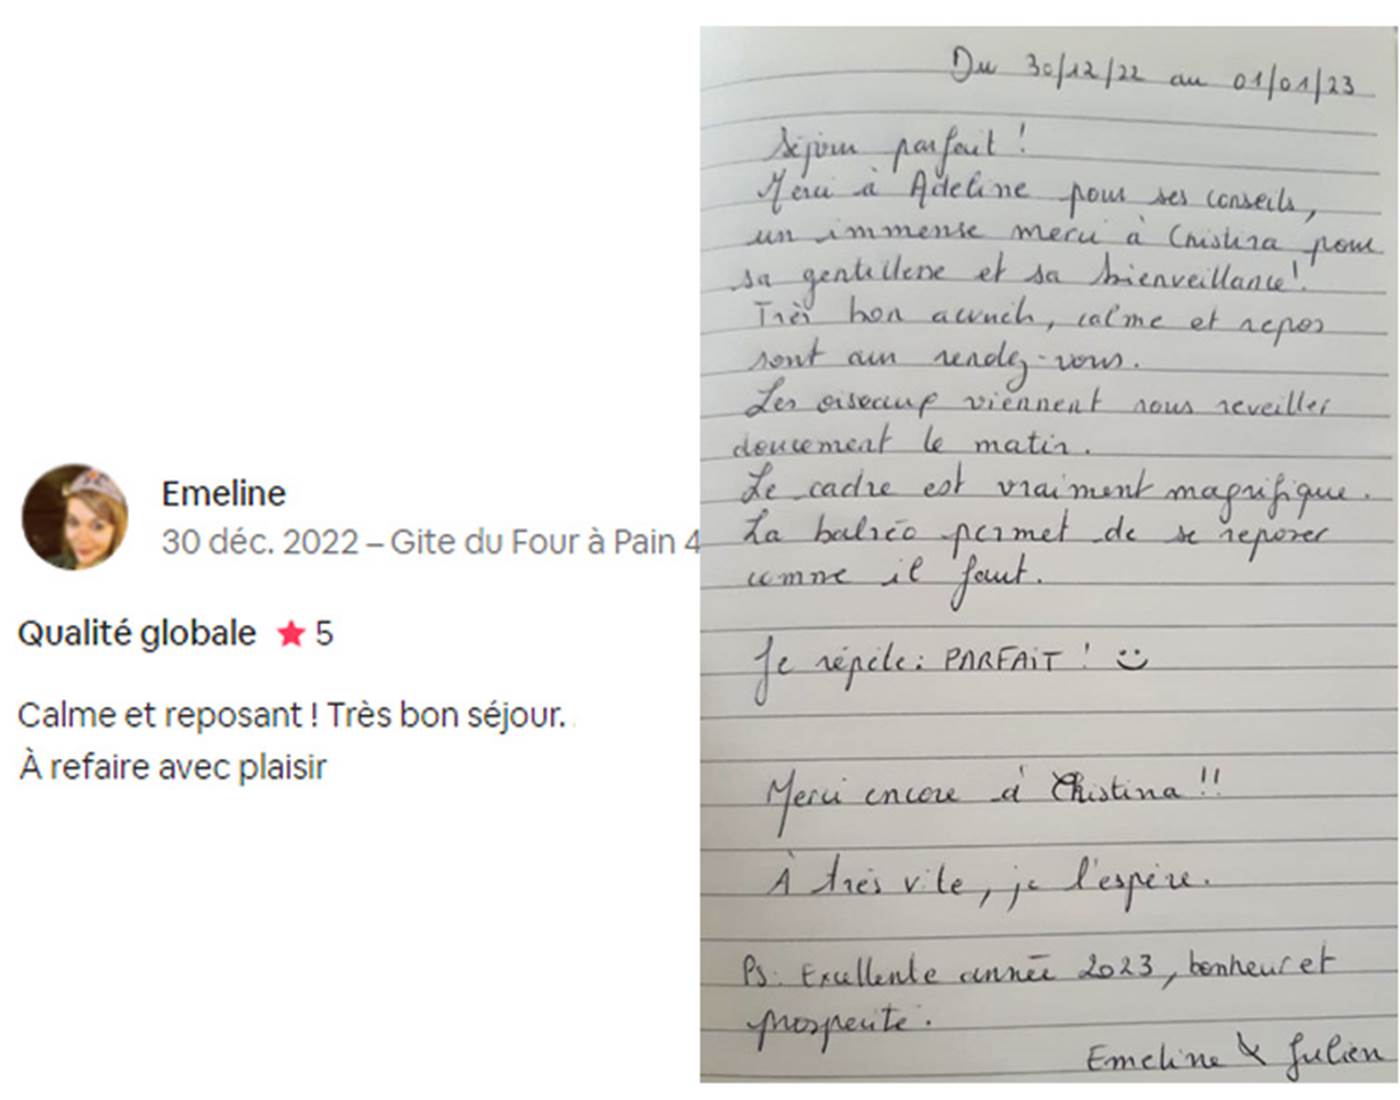 Emeline
30 déc. 2022 – Gite du Four à Pain 4
Qualité globale ★ 5
Calme et reposant ! Très bon séjour.
À refaire avec plaisir
Du 30/12/22 au 01/01/23
Séjour parfait !
Merci à Adeline pour ses conseils,
un immense merci à Christina pour
sa gentillesse et sa bienveillance !
Très bon accueil, calme et repos
sont au rendez-vous.
Les oiseaux viennent nous reveiller
doucement le matin.
Le cadre est vraiment magnifique.
La balnéo permet de se reposer
comme il faut.
Je répète : PARFAIT ! :)
Merci encore à Christina !!
À très vite, je l'espère.
Ps : Excellente année 2023, bonheur et
prosperité.
Emeline & Julien